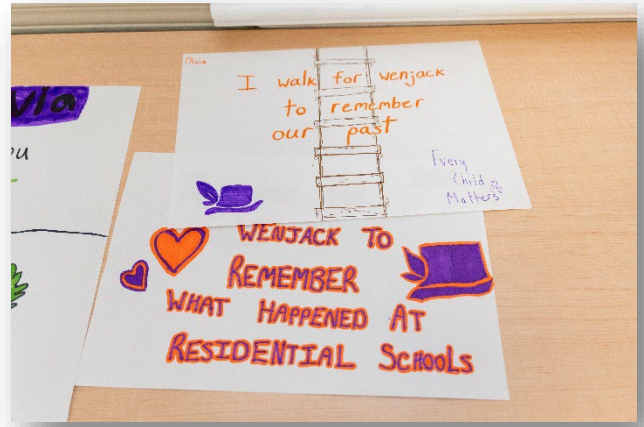 Olivia
I walk for wenjack
to remember
our past
Every
Child
Matters
WENJACK TO
REMEMBER
WHAT HAPPENED AT
RESIDENTIAL SCHOOLS